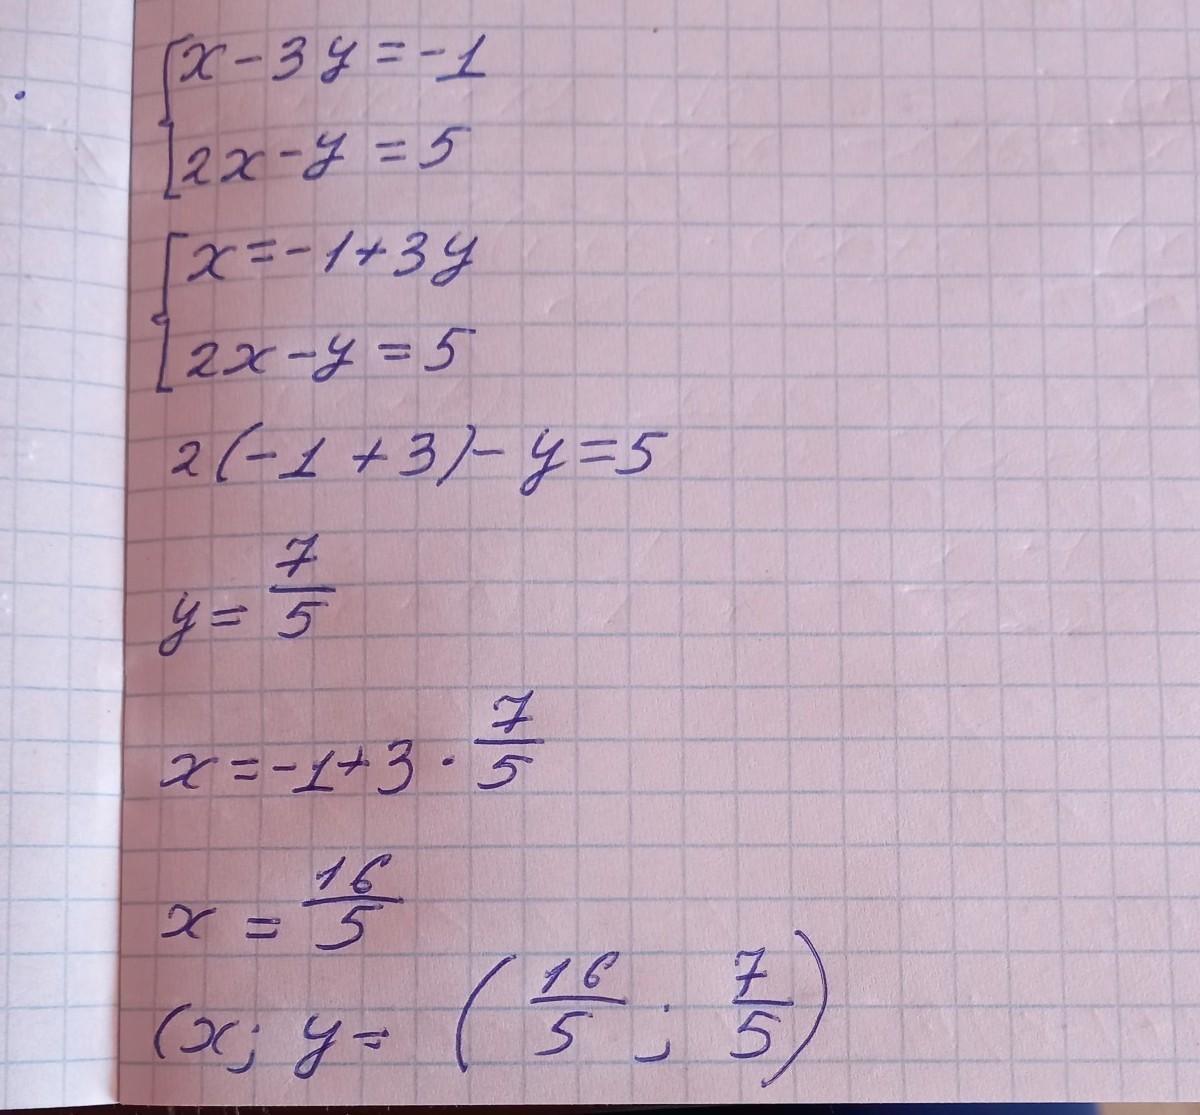 x-3y=-1
2x-y=5
x=-1+3y
2x-y=5
2(-1+3)-y=5
y=7/5
x=-1+3·7/5
x=16/5
(x; y= (16/5; 7/5)